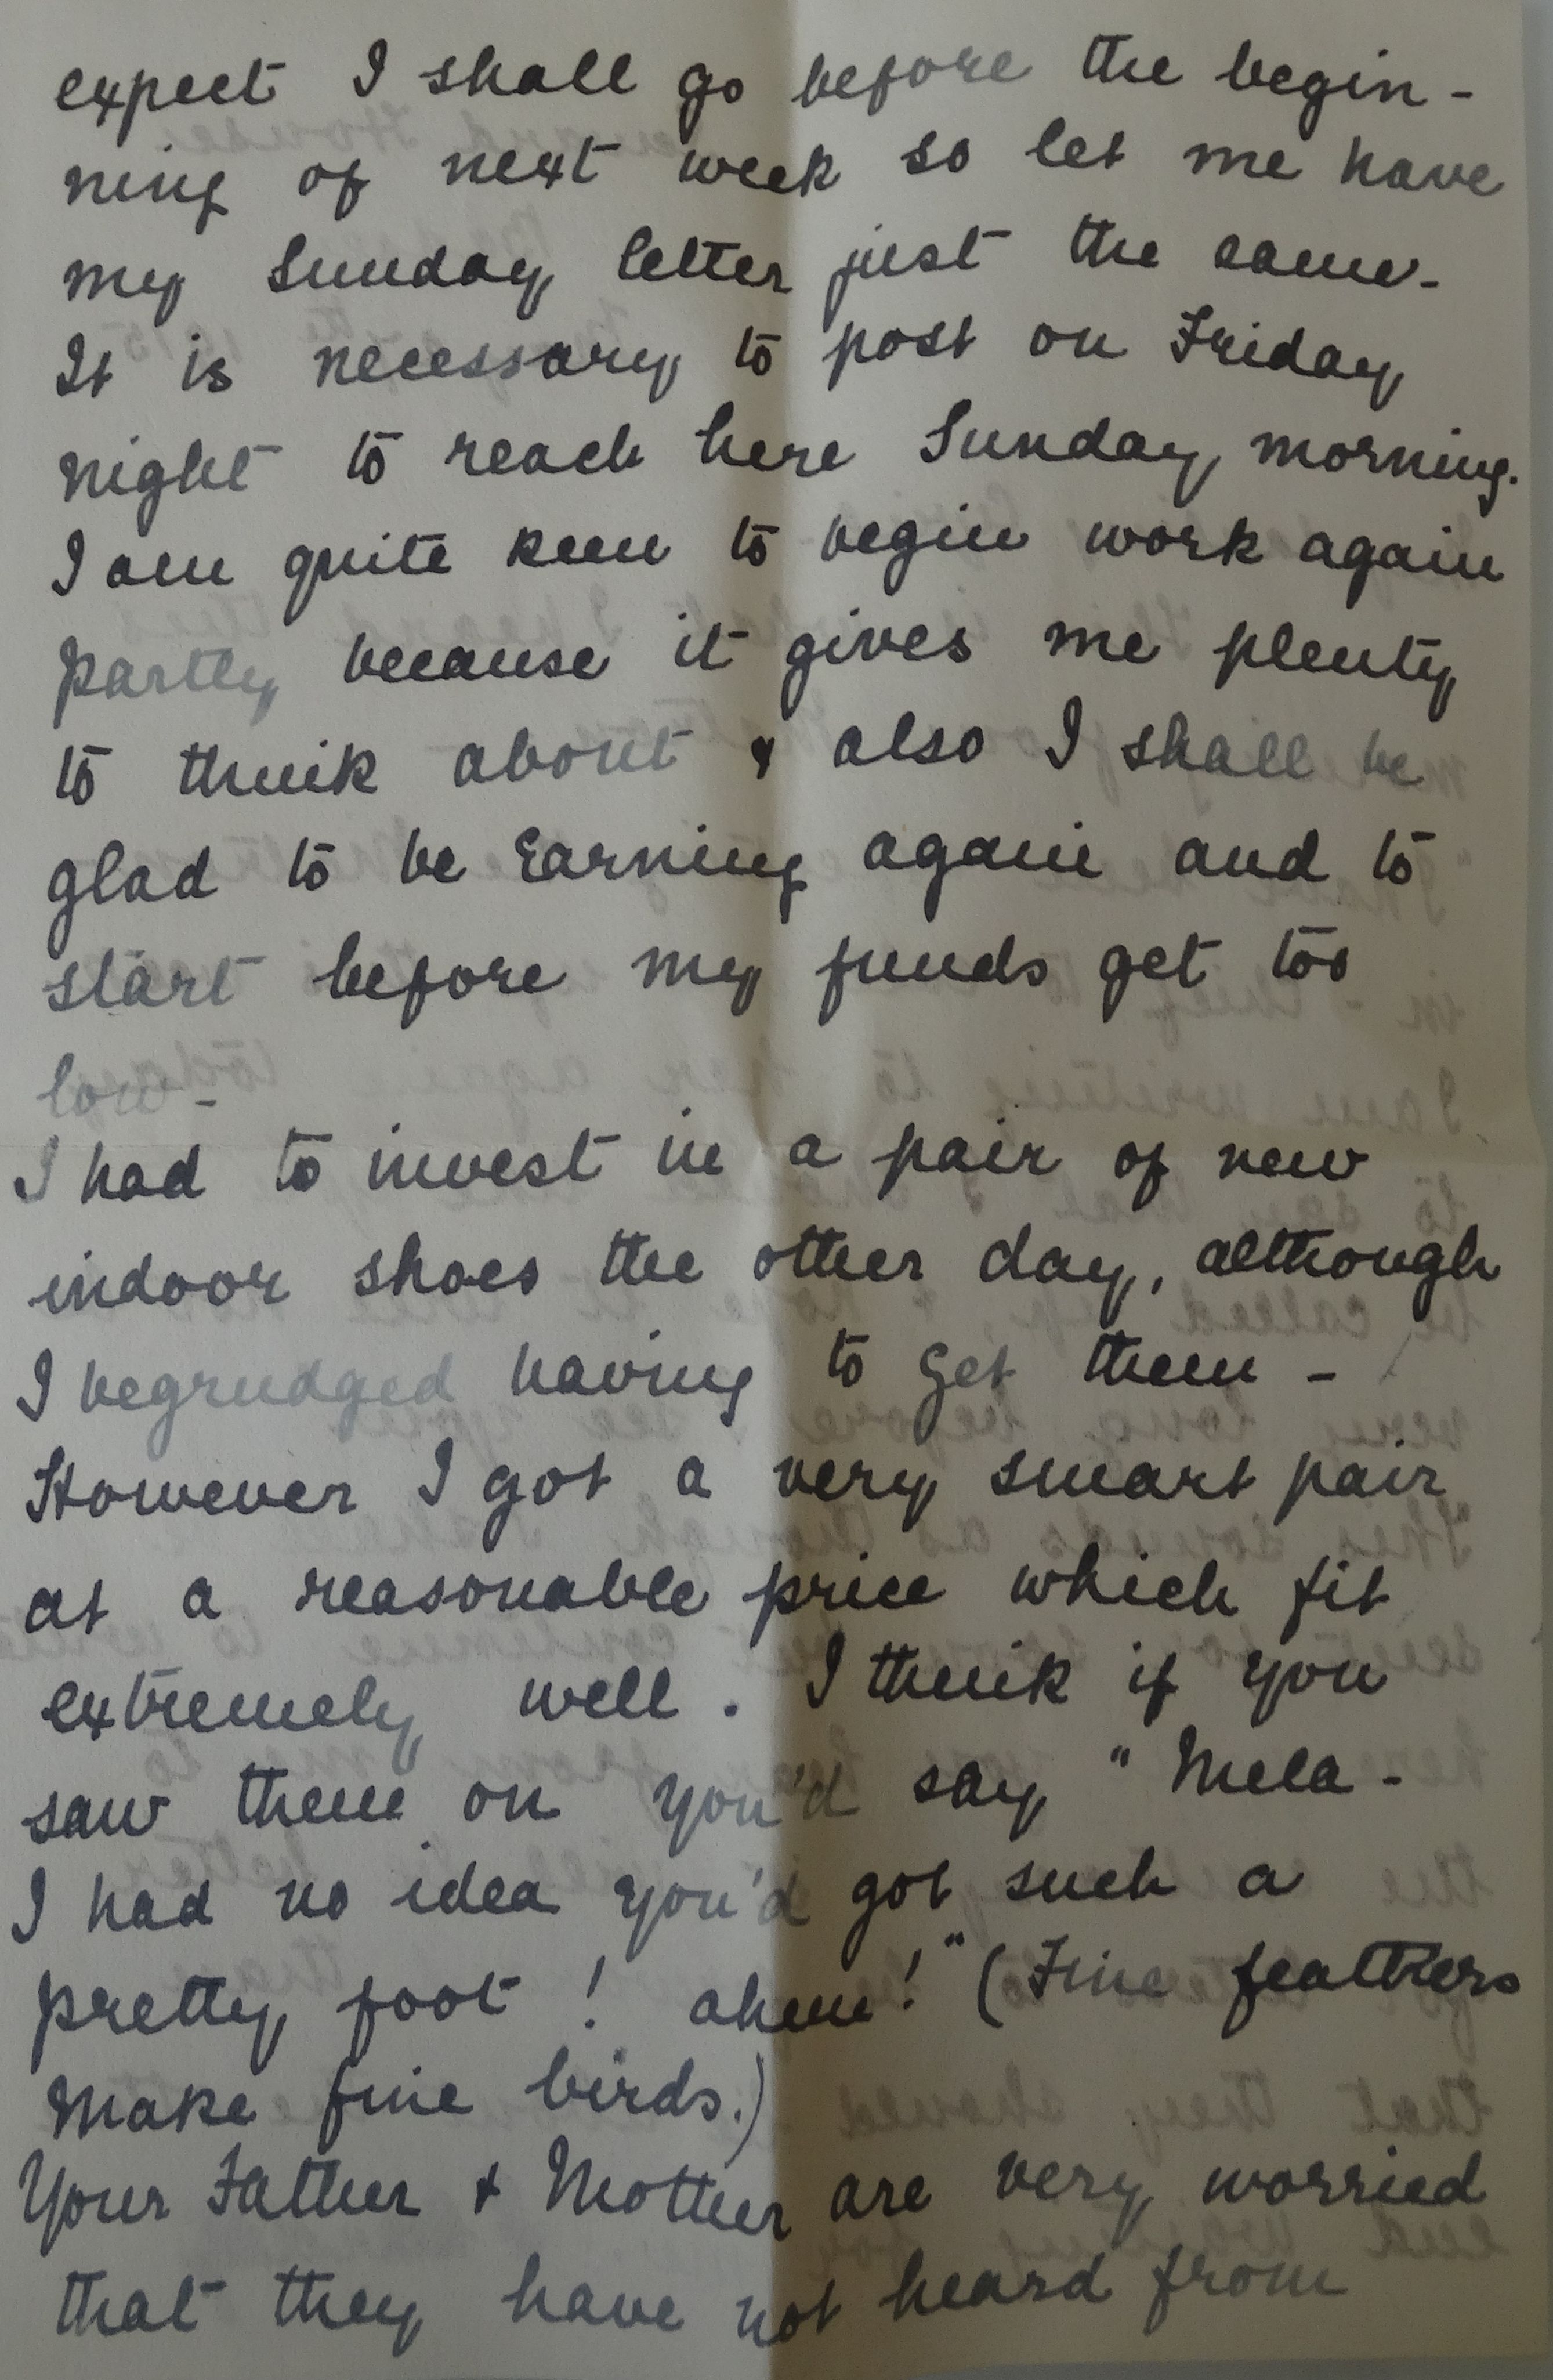 expect I shall go before the begin-
ning of next week so let me have
my Sunday letter just the same-
It is necessary to post on Friday
night to reach here Sunday morning.
I am quite keen to begin work again
partly because it gives me plenty
to think about & also I shall be
glad to be Earning again and to
start before my funds get too
low-
I had to invest in a pair of new
indoor shoes the other day, although
I begrudged having to get them -
However I got a very smart pair
at a reasonable price which fit
extremely well. I think if you
saw them on you'd say "Mela -
I had no idea you'd got such a
pretty foot! ahem!" (Fine feathers
make fine birds.)
Your Father & Mother are very worried
that they have not heard from